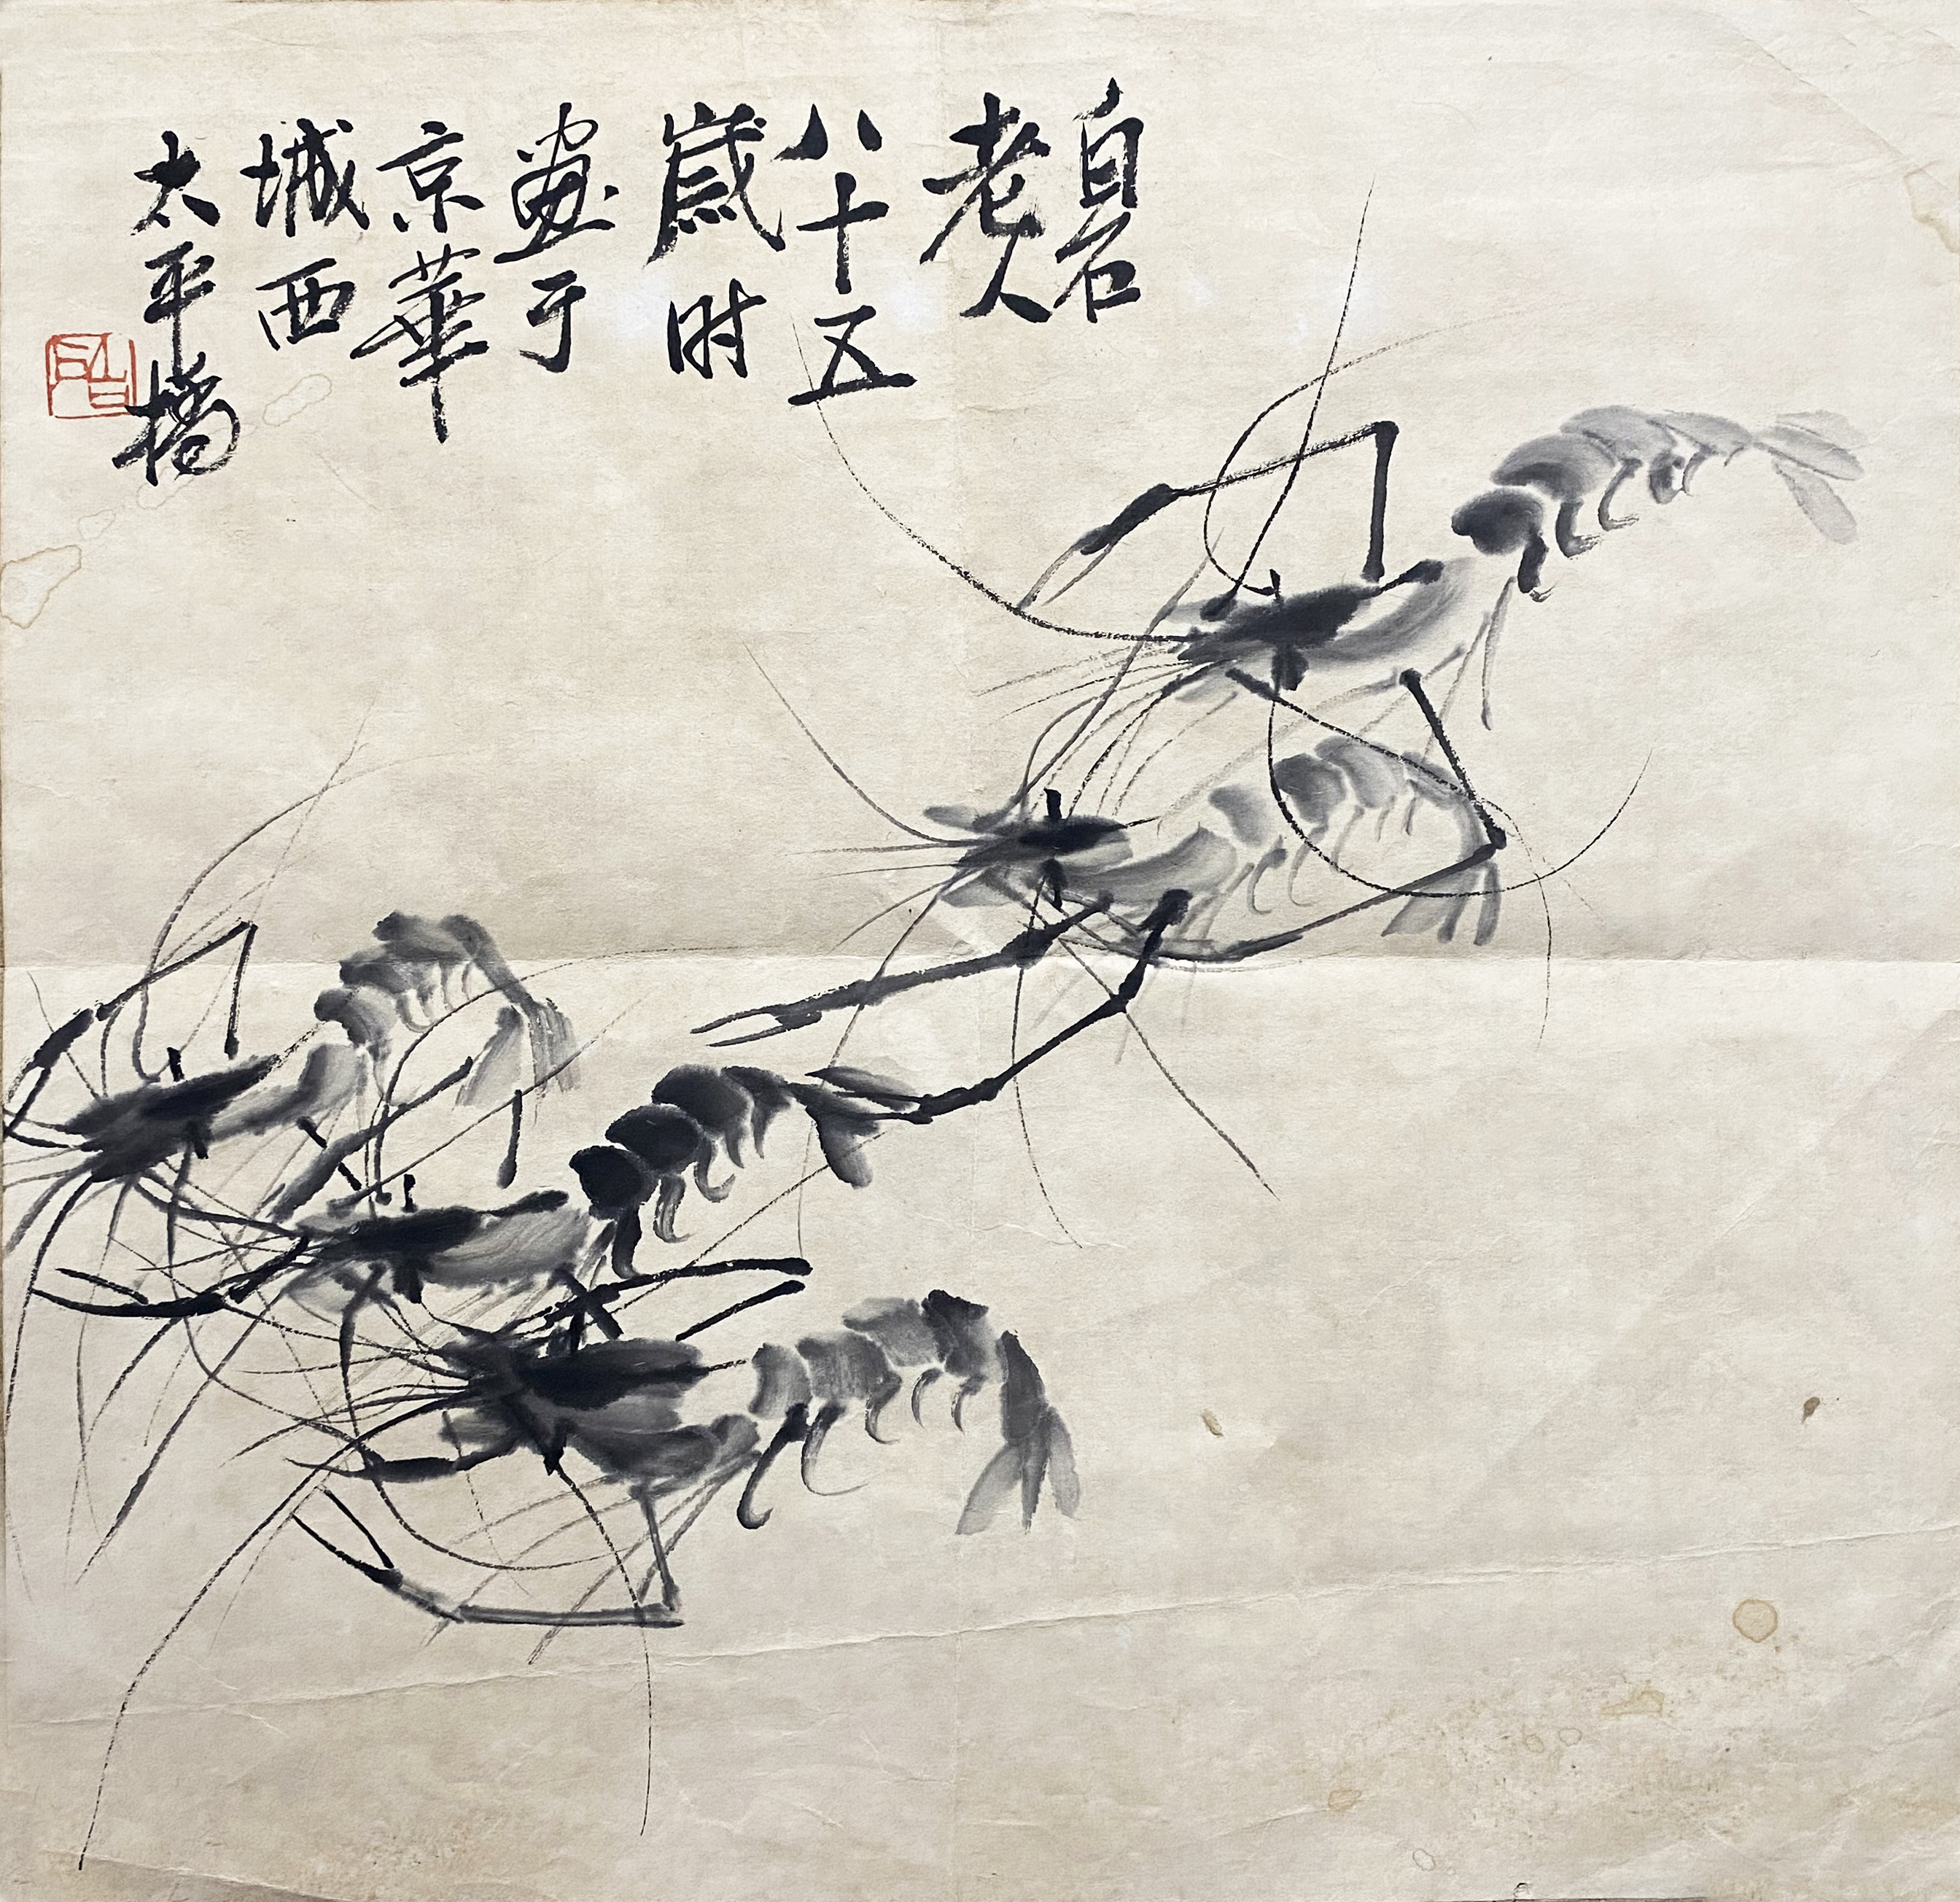 白石
老人
八十五
歲时
画于
京華
城西
太平橋
白石